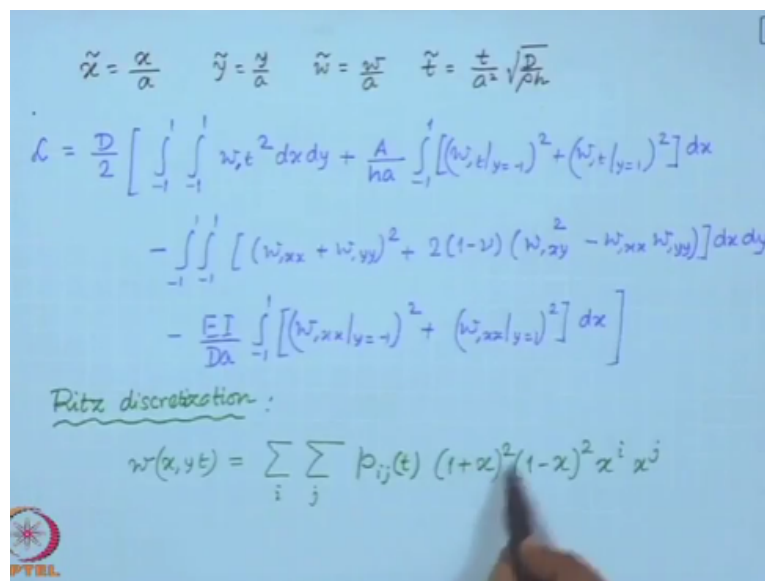 x̃ = x/a   ỹ = y/a   w̃ = w/a   t̃ = t/a² √(D/ρh)
ℒ = D/2 [ ∫₋₁¹ ∫₋₁¹ w,t² dx dy + A/ha ∫₋₁¹ [(w,t|y=-1)² + (w,t|y=1)²] dx
- ∫₋₁¹ ∫₋₁¹ [ (w,xx + w,yy)² + 2(1-ν) (w,xy² - w,xx w,yy)] dx dy
- EI/Da ∫₋₁¹ [(w,xx|y=-1)² + (w,xx|y=1)²] dx ]
Ritz discretization :
w(x,y t) = Σᵢ Σⱼ pᵢⱼ(t) (1+x)² (1-x)² xⁱ xʲ
PTEL